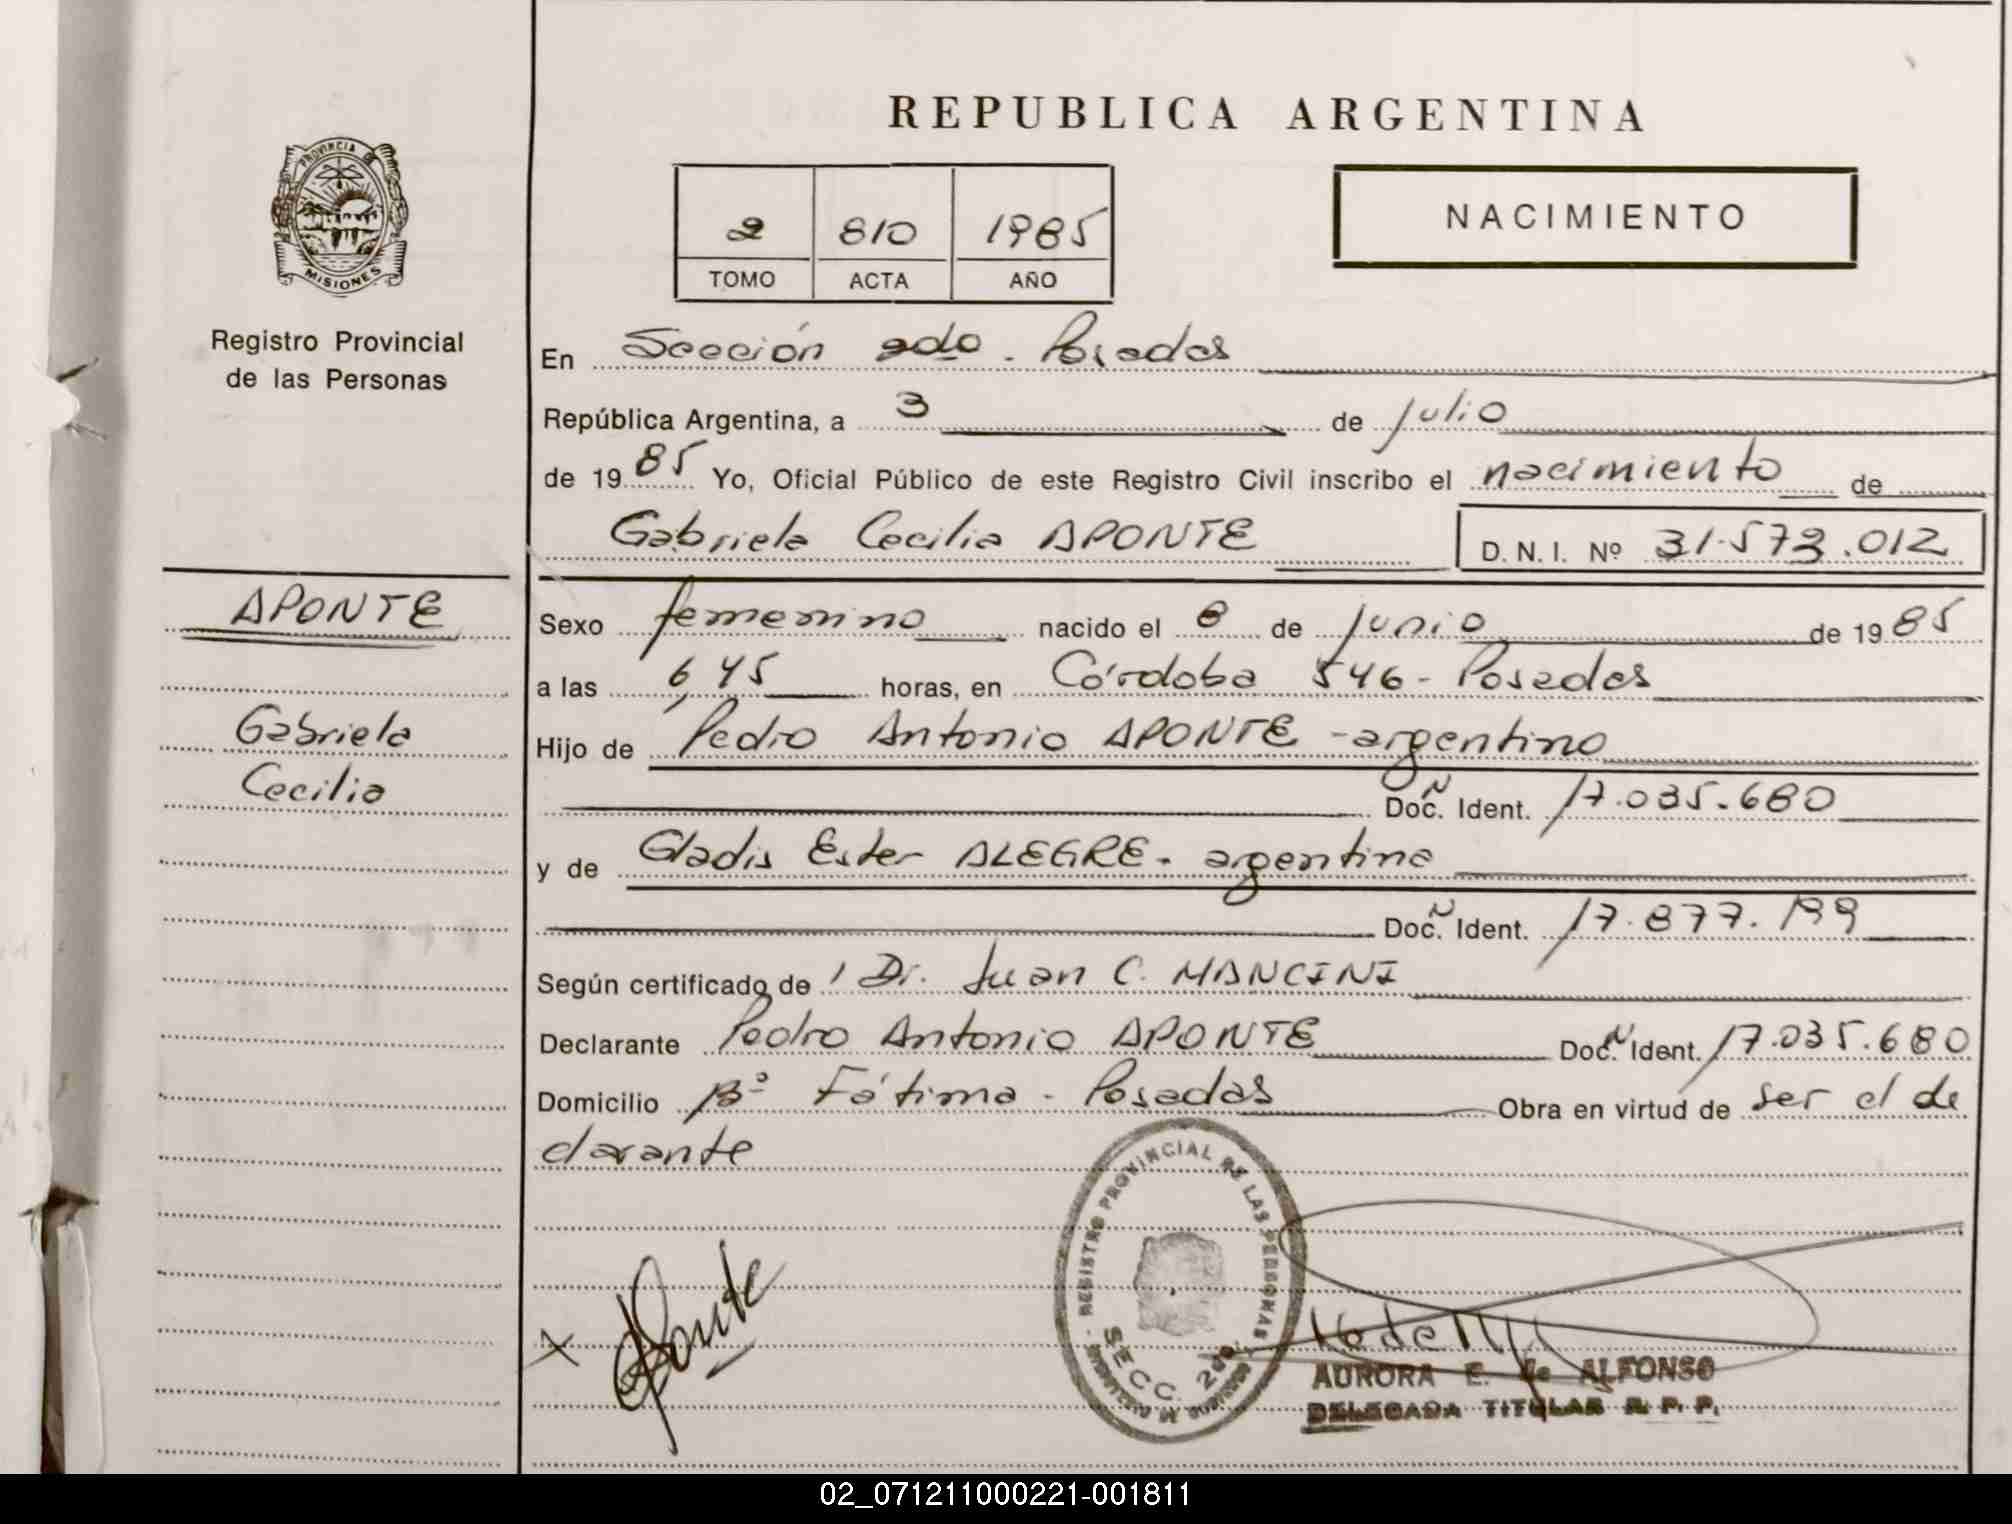 PROVINCIA DE
MISIONES
Registro Provincial
de las Personas
APONTE
Gabriela
Cecilia
REPUBLICA ARGENTINA
2 810 1985
TOMO ACTA AÑO
NACIMIENTO
En Sección 2do. Posadas
República Argentina, a 3 de julio
de 1985 Yo, Oficial Público de este Registro Civil inscribo el nacimiento de
Gabriela Cecilia APONTE D. N. I. Nº 31.573.012
Sexo femenino nacido el 8 de junio de 1985
a las 6,45 horas, en Córdoba 546 - Posadas
Hijo de Pedro Antonio APONTE - argentino
Doc. Ident. 17.035.680
y de Gladis Ester ALEGRE - argentina
Doc. Ident. 17.877.199
Según certificado de Dr. Juan C. MANCINI
Declarante Pedro Antonio APONTE Doc. Ident. 17.035.680
Domicilio Bº Fátima - Posadas Obra en virtud de ser el de
clarante
Aponte
REGISTRO PROVINCIAL DE LAS PERSONAS
SECC. 2da.
AURORA E. de ALFONSO
DELEGADA TITULAR R. P. P.
02_071211000221-001811